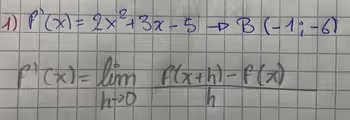 1) f'(x) = 2x²+3x-5 → B (-1; -6)
f'(x) = lim h→0 f(x+h) - f(x) / h